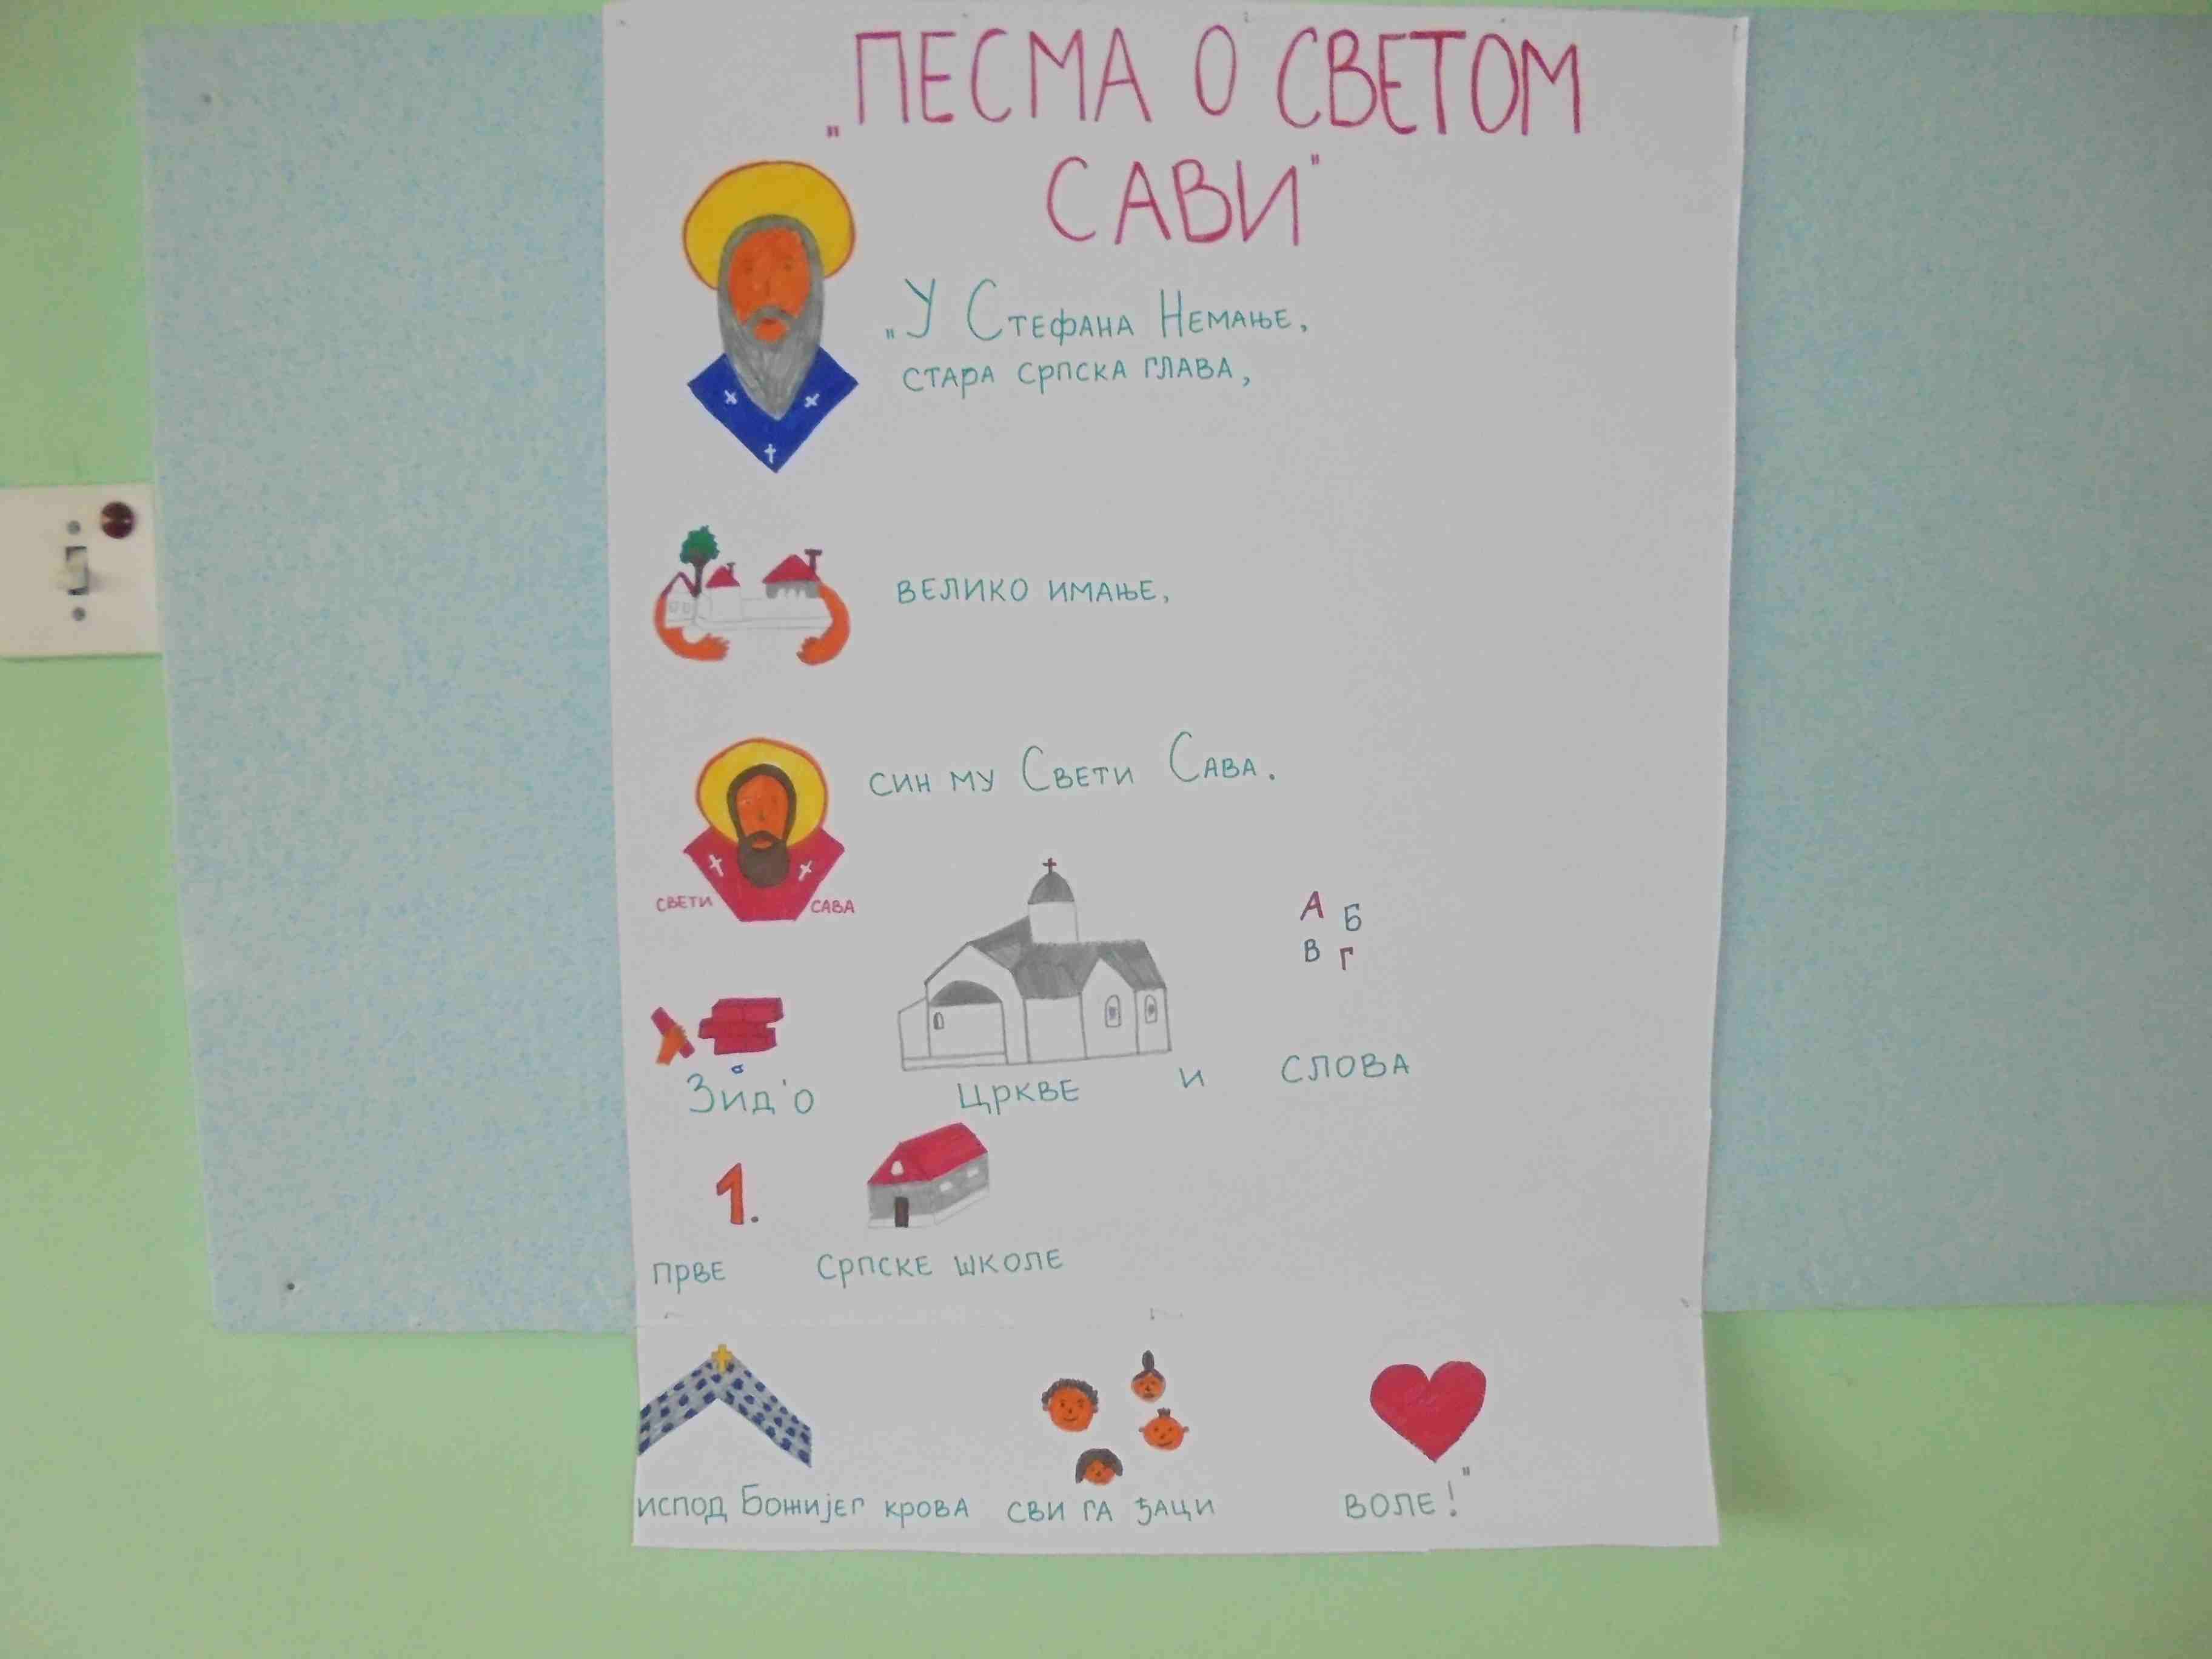 „ПЕСМА О СВЕТОМ
САВИ"
„У СТЕФАНА НЕМАЊЕ,
СТАРА СРПСКА ГЛАВА,
ВЕЛИКО ИМАЊЕ,
СИН МУ СВЕТИ САВА.
СВЕТИ САВА
А Б
В Г
ЗИД'О ЦРКВЕ И СЛОВА
1.
ПРВЕ СРПСКЕ ШКОЛЕ
ИСПОД БОЖИЈЕГ КРОВА СВИ ГА ЂАЦИ ВОЛЕ!"